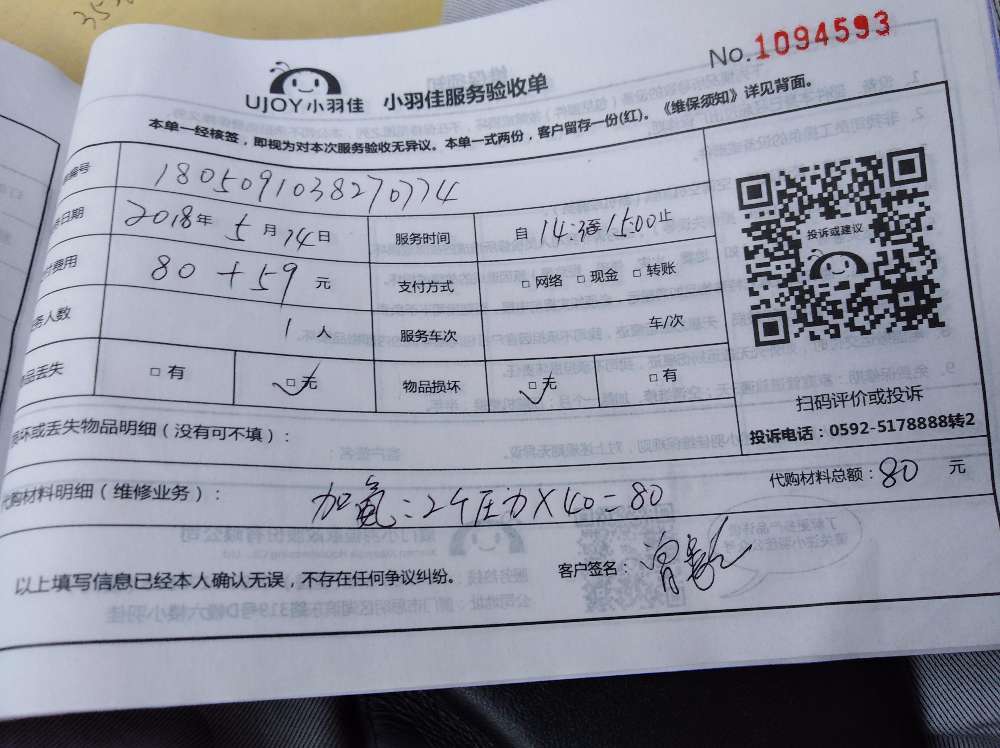 No.1094593
UJOY小羽佳 小羽佳服务验收单
本单一经核签，即视为对本次服务验收无异议。本单一式两份，客户留存一份(红)。《维保须知》详见背面。
编号 1805091038270774
日期 2018年 5月 14日 服务时间 自 14:3至15:00止
费用 80+59 元 支付方式 □ 网络 □ 现金 □ 转账
人数 1 人 服务车次 车/次
丢失 □ 有 □ 无 物品损坏 □ 无 □ 有
投诉或建议
扫码评价或投诉
投诉电话：0592-5178888转2
坏或丢失物品明细（没有可不填）：
代购材料明细（维修业务）： 加氟：2个压力×40=80 代购材料总额：80 元
以上填写信息已经本人确认无误，不存在任何争议纠纷。 客户签名：